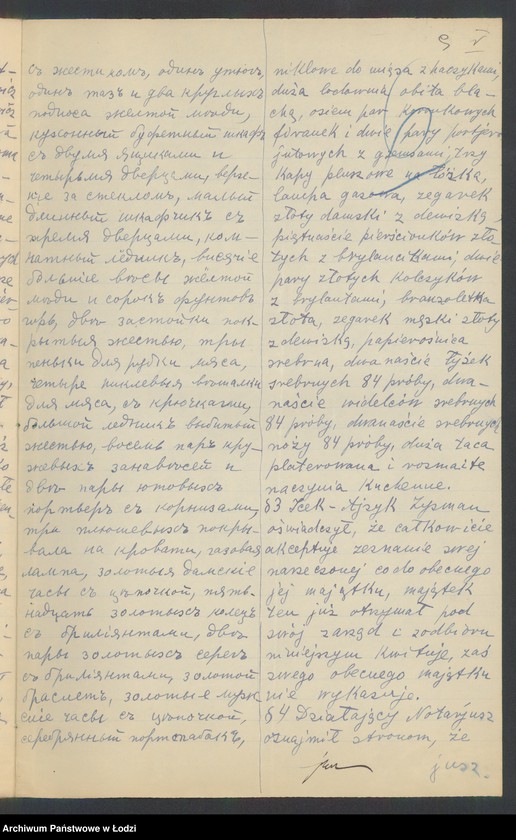 съ жестикомъ, одинъ утюгъ,
одинъ тазъ и два круглыхъ
подноса желтой мѣди,
кухонный буфетный шкафъ
съ двумя ящиками и
четырьмя дверцами, верх-
ніе за стекломъ, малый
длинный шкафчикъ съ
тремя дверцами, ком-
натный ледникъ, висячіе
большіе вѣсы жёлтой
мѣди и сорокъ фунтовъ
гирь, двѣ застойки пок-
рытыя жестью, три
пеньки для рубки мяса,
четыре никлевыя вѣшалки
для мяса, съ крючками,
большой ледникъ выбитый
жестью, восемь паръ кру-
жевыхъ занавѣсей и
двѣ пары ютовыхъ
портьеръ съ корнизами,
три плюшевыхъ покры-
вала на кровати, газовая
лампа, золотыя дамскіе
часы съ цѣпочкой, пять-
надцать золотыхъ колецъ
съ брилліянтами, двѣ
пары золотыхъ серегъ
съ брилліянтами, золотой
браслетъ, золотые муж-
скіе часы съ цѣпочкой,
серебрянный портсигаръ,
9 V
niklowe do mięsa z haczykami,
duża lodownia obita bla-
chą, osiem par koronkowych
firanek i dwie pary portjer
jutowych z gzymsami, trzy
kapy pluszowe na łóżka,
lampa gazowa, zegarek
złoty damski z dewizką,
piętnaście pierścionków zło-
tych z brylancikami, dwie
pary złotych kolczyków
z brylantami, bransoletka
złota, zegarek męski złoty
z dewizką, papierośnica
srebrna, dwanaście łyżek
srebrnych 84 próby, dwa-
naście widelców srebrnych
84 próby, dwanaście srebrnych
noży 84 próby, duża taca
platerowana i rozmaite
naczynia kuchenne.
§3 Icek-Ajzyk Zysman
oświadczył, że całkowicie
akceptuje zeznanie swej
narzeczonej co do obecnego
jej majątku, majątek
ten już otrzymał pod
swój zarząd i z odbioru
niniejszym kwituje, zaś
swego obecnego majątku
nie wykazuje.
§4 Działający Notarjusz
oznajmił stronom, że
jusz.
Archiwum Państwowe w Łodzi